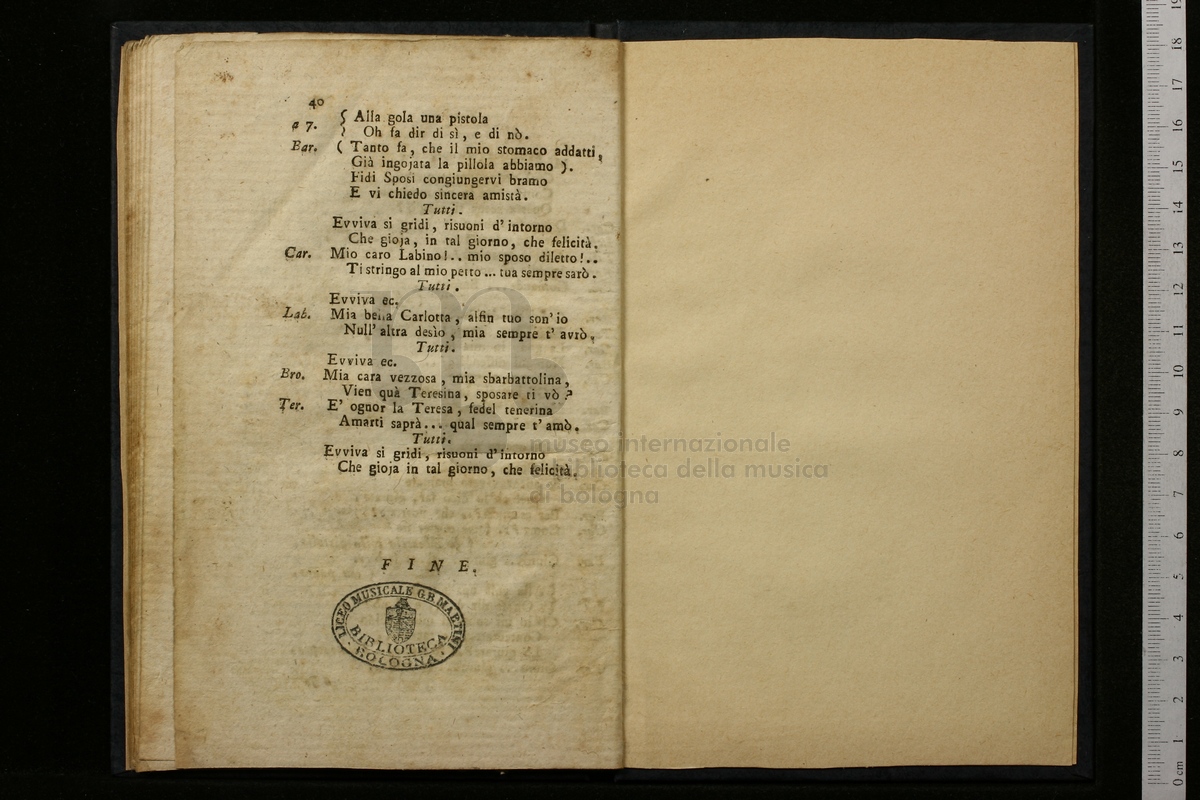 40
a 7. { Alla gola una pistola
Oh fa dir di sì, e di nò.
Bar. ( Tanto fa, che il mio stomaco addatti,
Già ingojata la pillola abbiamo ).
Fidi Sposi congiungervi bramo
E vi chiedo sincera amistà.
Tutti.
Evviva si gridi, risuoni d' intorno
Che gioja, in tal giorno, che felicità.
Car. Mio caro Labino!.. mio sposo diletto!..
Ti stringo al mio petto... tua sempre sarò.
Tutti.
Evviva ec.
Lab. Mia bella Carlotta, alfin tuo son' io
Null' altra desìo, mia sempre t' avrò.
Tutti.
Evviva ec.
Bro. Mia cara vezzosa, mia sbarbattolina,
Vien quà Teresina, sposare ti vò?
Ter. E' ognor la Teresa, fedel tenerina
Amarti saprà... qual sempre t' amò.
Tutti.
Evviva si gridi, risuoni d' intorno
Che gioja in tal giorno, che felicità.
FINE.
LICEO MUSICALE G.B. MARTINI
BIBLIOTECA
BOLOGNA
museo internazionale
biblioteca della musica
di bologna
0 cm 1 2 3 4 5 6 7 8 9 10 11 12 13 14 15 16 17 18 19